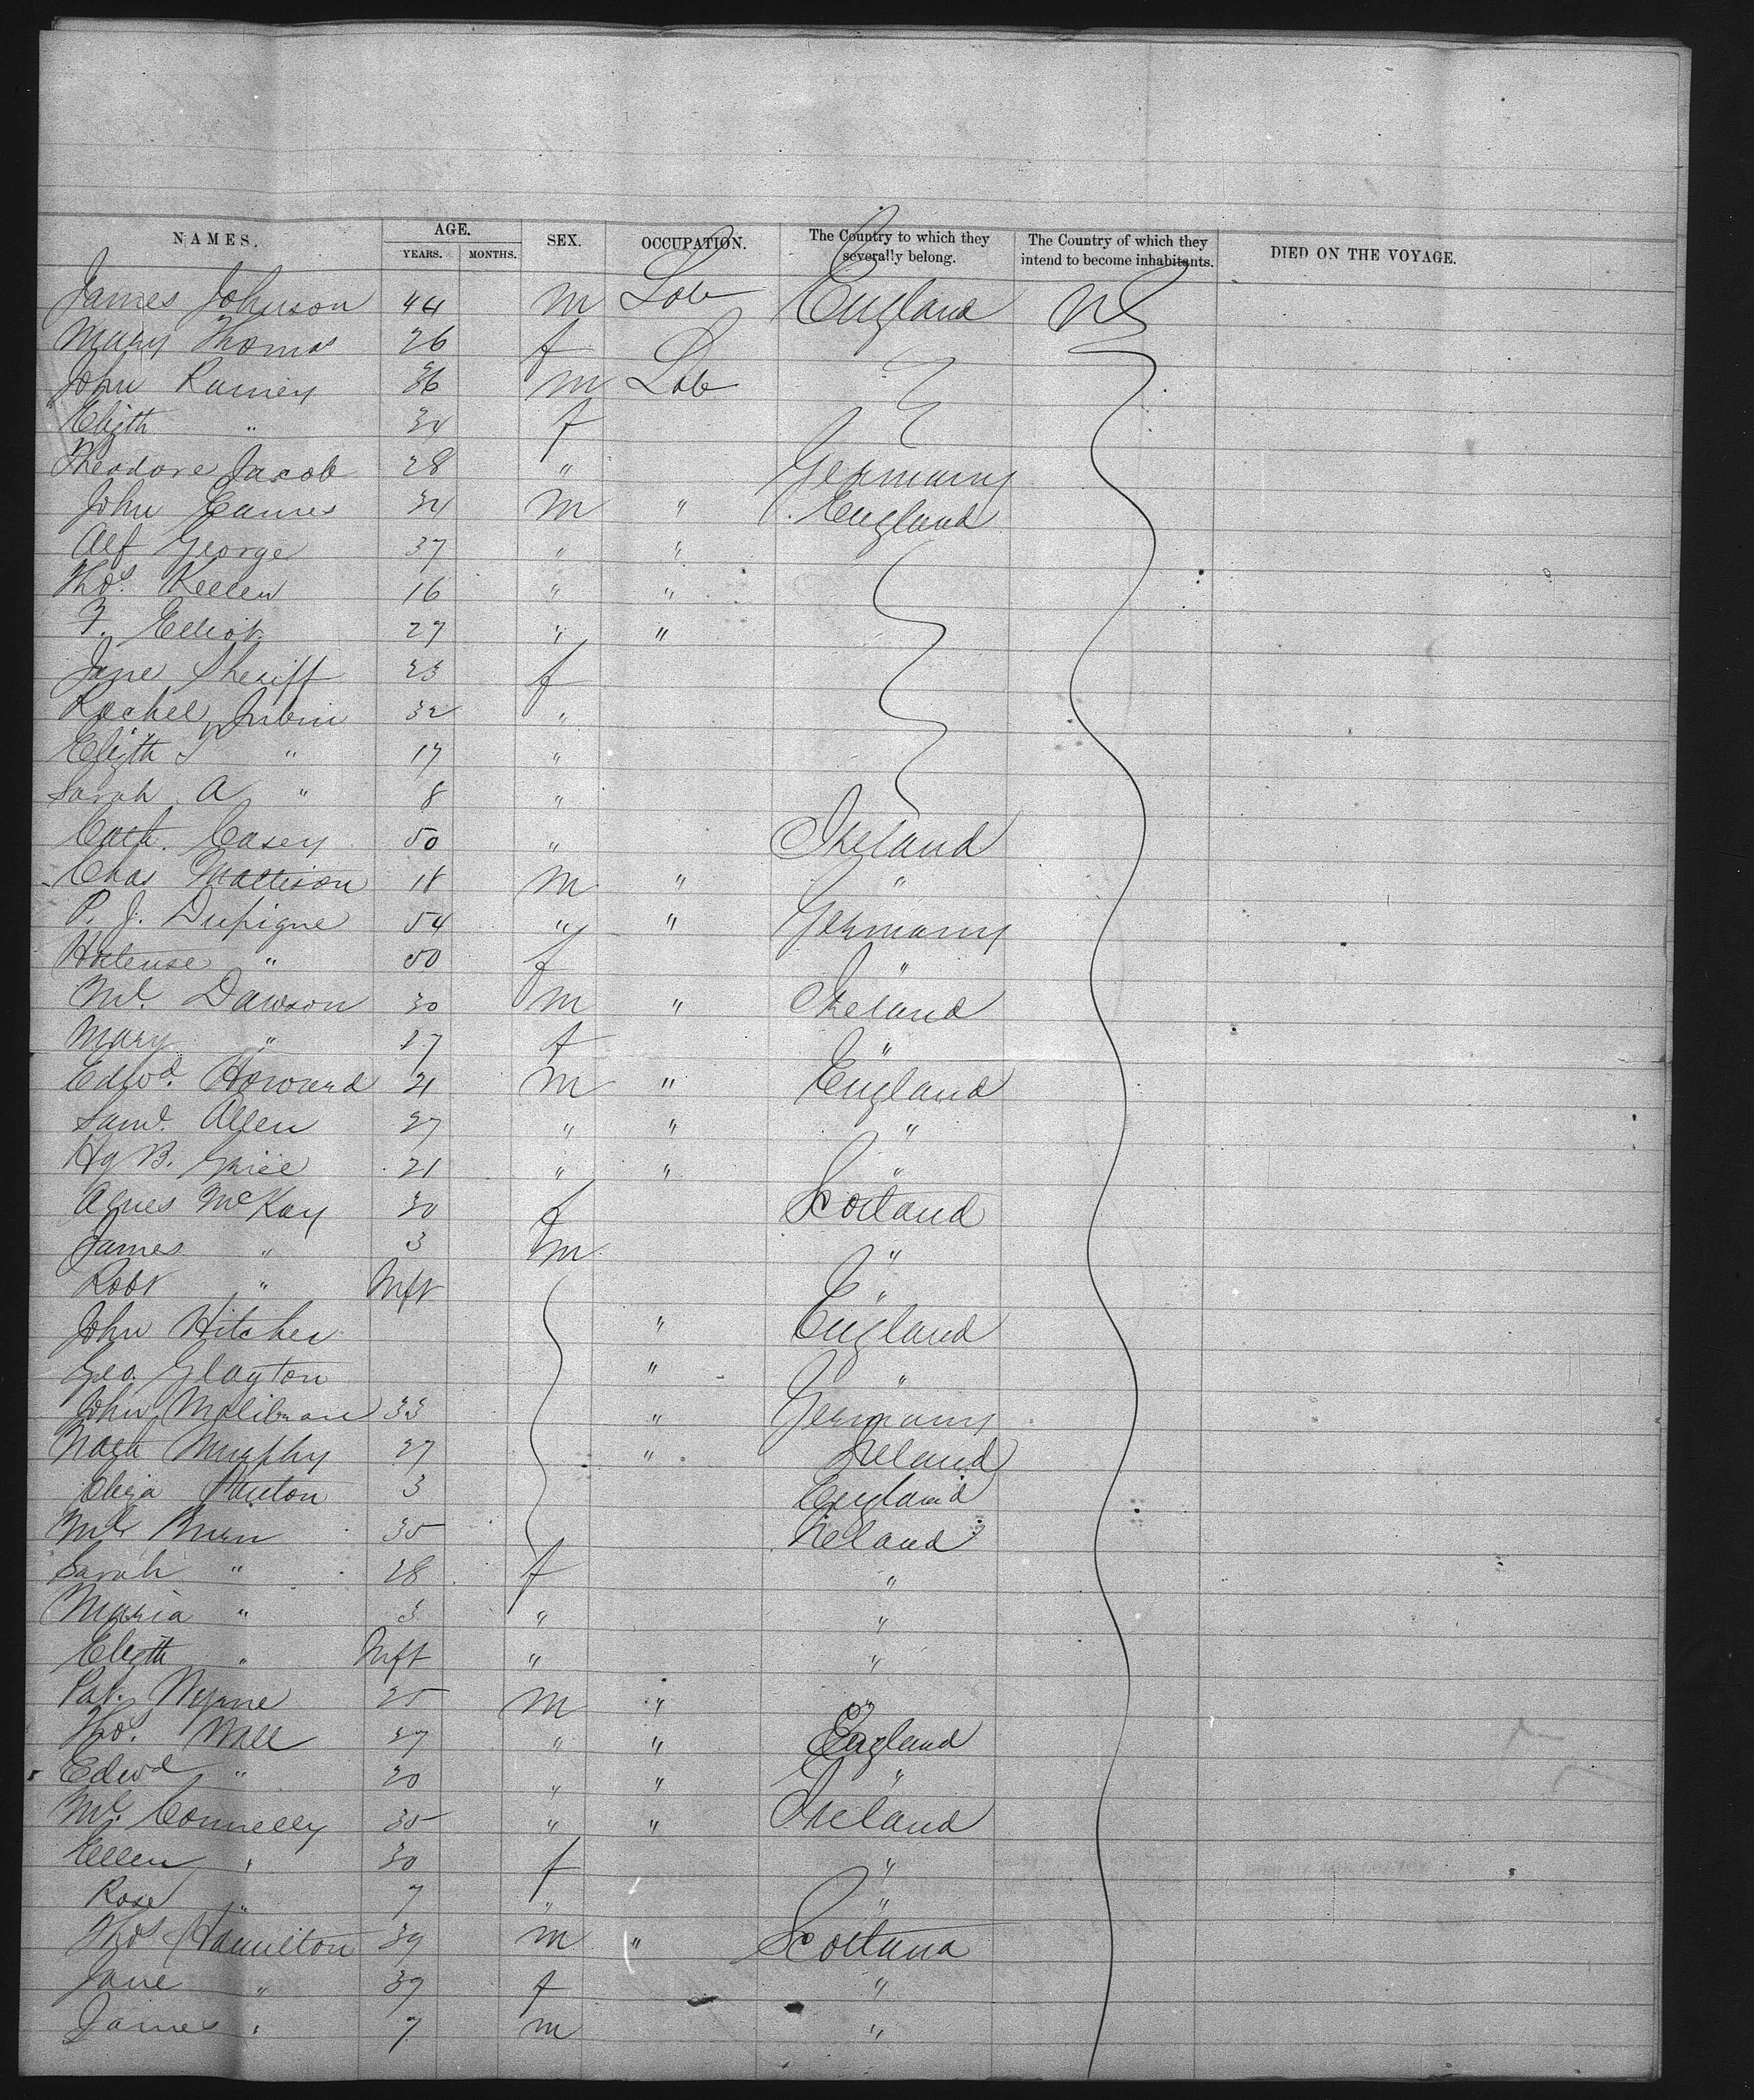 NAMES. AGE. SEX. OCCUPATION. The Country to which they severally belong. The Country of which they intend to become inhabitants. DIED ON THE VOYAGE.
YEARS. MONTHS.
James Johnson 44 m Lab England
Mary Thomas 26 f
John Ramey 36 m Lab
Elizth " 34 f
Theodore Jacob 28 " Germany
John Eames 34 m " England
Alf George 37 " "
Thos. Keelen 16 " "
F. Elliot 27 " "
Jane Sheriff 23 f
Rachel 32 "
Elizth " 17 "
Sarah A " 8 "
Cath. Casey 50 " Ireland
Chas Mattison 18 m " "
P. J. Dupigne 54 " " Germany
" 50 f "
Ml. Dawson 30 m " Ireland
Mary " 27 f "
Edwd. Howard 21 m " England
Saml. Allen 27 " " "
Hy B. 21 " " "
Agnes McKay 30 f Scotland
James " 3 m "
Robt " Inft "
John Hitcher " England
Geo. Glayton " "
John 33 " Germany
Murphy 27 " Ireland
Eliza 3 England
35 Ireland
Sarah " 28 f "
Maria " 3 " "
Elizth " Inft " "
Pat. 25 m " "
Thos. 27 " " England
Edwd " 20 " " "
Ml. Connelly 35 " " Ireland
Ellen " 30 f "
Rose " 7 " "
Thos Hamilton 39 m " Scotland
Jane " 37 f "
James " 7 m "